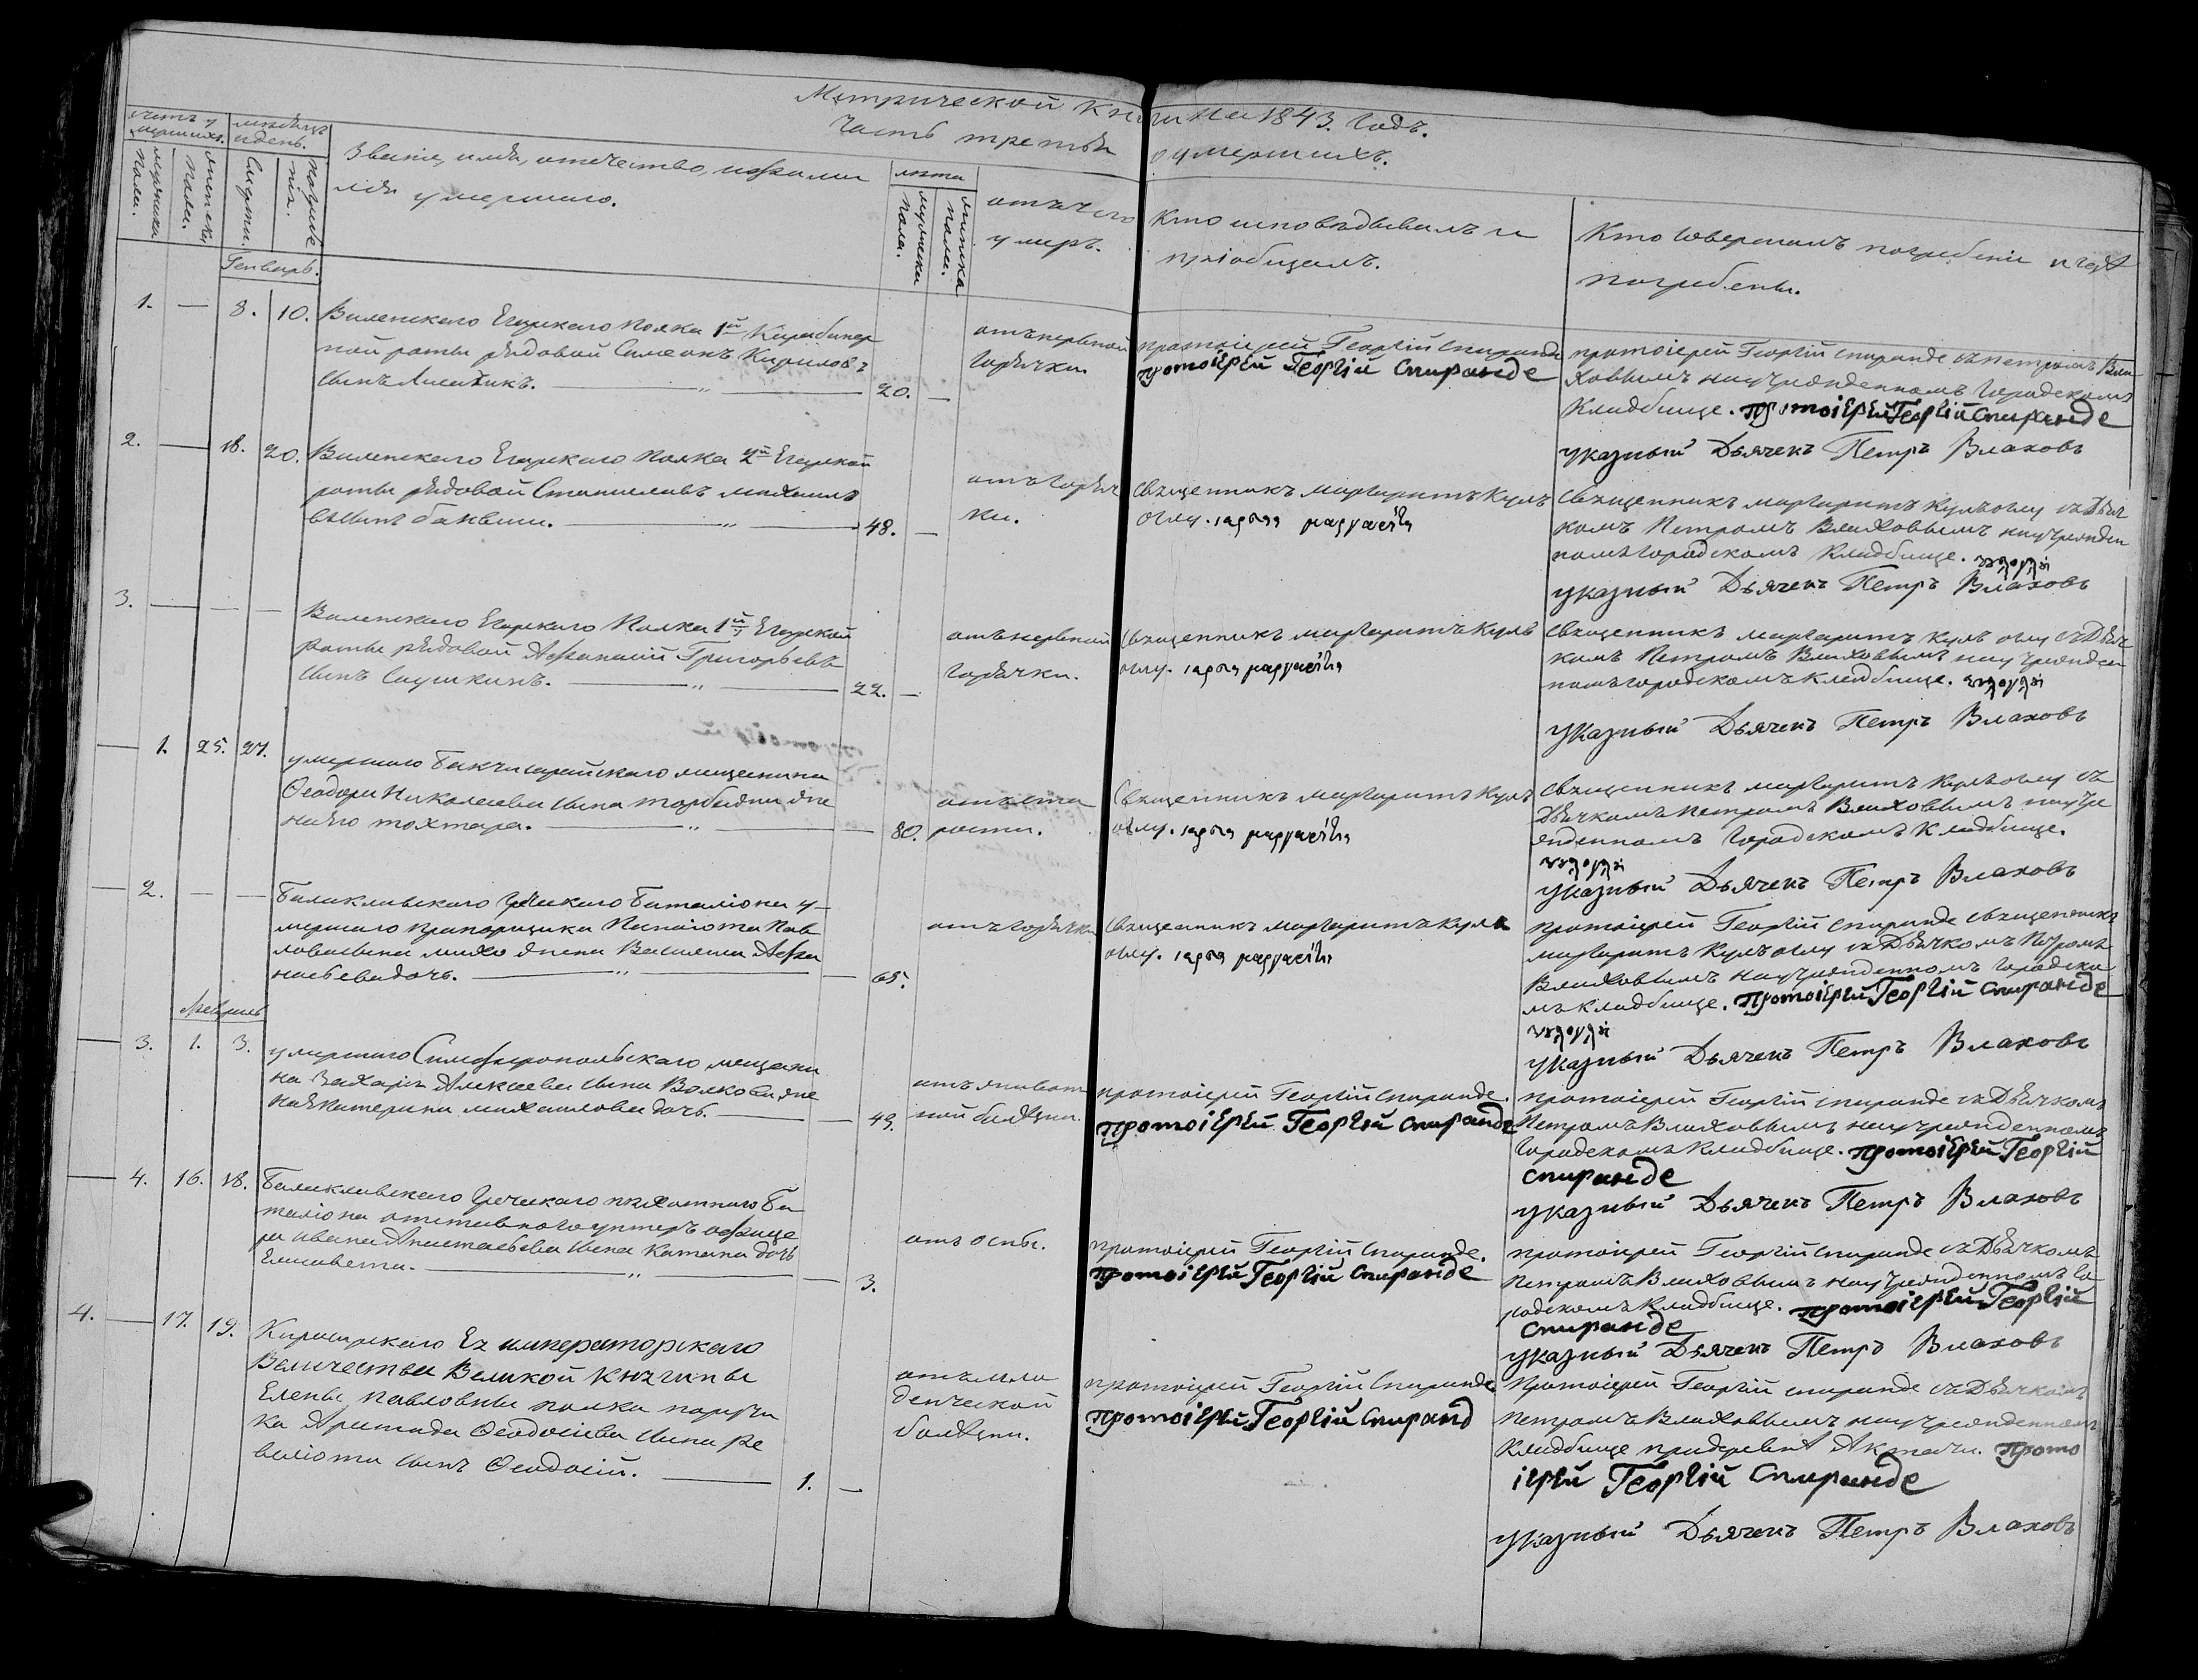 Метрической Книги на 1843. Годъ.
Часть третья о умершихъ.
счетъ умершихъ. мѣсяцъ и день. Званiе, имя, отечество, и фамилiя умершаго. лѣта отъ чего умеръ. Кто исповѣдывалъ и прiобщалъ. Кто Совершалъ погребенiе и гдѣ погребены.
мужеска пола. женска пола. Смерти. погребенiя. мужеска пола. женска пола.
Генварь.
1. — 8. 10. Виленскаго Егерскаго Полка 1й Карабинер
ной роты рядовой Симеонъ Кириловъ
сынъ — „ — 20. —
отъ нервной
Горячки.
протоiерей Георгiй Спиранде
протоiерей Георгiй Спиранде
протоiерей Георгiй Спиранде съ петромъ Вла
ховымъ на учрежденномъ Городскомъ
Кладбище. протоiерей Георгiй Спиранде
указный Дьячекъ Петръ Влаховъ
2. — 18. 20. Виленскаго Егерскаго Полка 2й Егерской
роты рядовой Станиславъ михаило
въ сынъ — „ — 48. —
отъ Горяч
ки.
Священникъ маргаритъ Кулъ
оглу. ιερευς μαργαρίτης
Священникъ маргаритъ Кулъоглу съ Дьяч
комъ Петромъ Влаховымъ на учрежден
номъ городскомъ Кладбище.
указный Дьячекъ Петръ Влаховъ
3. — — — Виленскаго Егерскаго Полка 1й Егерской
роты рядовой Афанасiй Григорьевъ
сынъ Саушкинъ. — „ — 22. —
отъ нервной
Горячки.
Священникъ маргаритъ Кулъ
оглу. ιερευς μαργαρίτης
Священникъ маргаритъ Кулъ оглу съ Дьяч
комъ Петромъ Влаховымъ на учрежден
номъ городскомъ кладбище.
указный Дьячекъ Петръ Влаховъ
— 1. 25. 27. умершаго Бакчисарайскаго мещанина
Феодора Николаева сына же
на его — „ — 80.
отъ ста
рости.
Священникъ маргаритъ Кулъ
оглу. ιερευς μαργαρίτης
Священникъ маргаритъ Кулъоглу съ
Дьячкомъ Петромъ Влаховымъ на учре
жденномъ Городскомъ Кладбище.
указный Дьячекъ Петръ Влаховъ
— 2. — — Балаклавскаго Греческаго Баталiона у
мершаго прапорщика Панаiота Пав
лова сына жена Афа
насьева дочь. — „ — 65.
отъ Горячки
Священникъ маргаритъ Кулъ
оглу. ιερευς μαργαρίτης
протоiерей Георгiй Спиранде Священникъ
маргаритъ Кулъоглу съ Дьячкомъ Петромъ
Влаховымъ на учрежденномъ Городско
мъ Кладбище. протоiерей Георгiй Спиранде
указный Дьячекъ Петръ Влаховъ
Февраль
— 3. 1. 3. умершаго Симферопольскаго мещани
на Захарiя Алексеева сына Волкова же
на Екатерина михаилова дочь. — 49.
отъ живот
ной болѣзни.
протоiерей Георгiй Спиранде.
протоiерей Георгiй Спиранде
протоiерей Георгiй Спиранде съ Дьячкомъ
Петромъ Влаховымъ на учрежденномъ
Городскомъ Кладбище. протоiерей Георгiй
Спиранде
указный Дьячекъ Петръ Влаховъ
— 4. 16. 18. Балаклавскаго Греческаго пѣхотнаго Ба
талiона отставнаго унтеръ офице
ра ивана Анастасьева сына Катана дочь
Елисавета. — „ — 3.
отъ оспы.
протоiерей Георгiй Спиранде.
протоiерей Георгiй Спиранде
протоiерей Георгiй Спиранде съ Дьячкомъ
Петромъ Влаховымъ на учрежденномъ Го
родскомъ Кладбище. протоiерей Георгiй
Спиранде
указный Дьячекъ Петръ Влаховъ
4. — 17. 19. Кирасирскаго Ея императорскаго
Величества Великой Княгины
Елены павловны полка поручи
ка Аристида Феодосiева сына Ре
велiоти сынъ Феодосiй. — 1. —
отъ мла
денческой
болѣзни.
протоiерей Георгiй Спиранде
протоiерей Георгiй Спиранд
протоiерей Георгiй спиранде съ Дьячкомъ
петромъ Влаховымъ на учрежденномъ
Кладбище при деревнѣ Актачи. прото
iерей Георгiй Спиранде
указный Дьячекъ Петръ Влаховъ